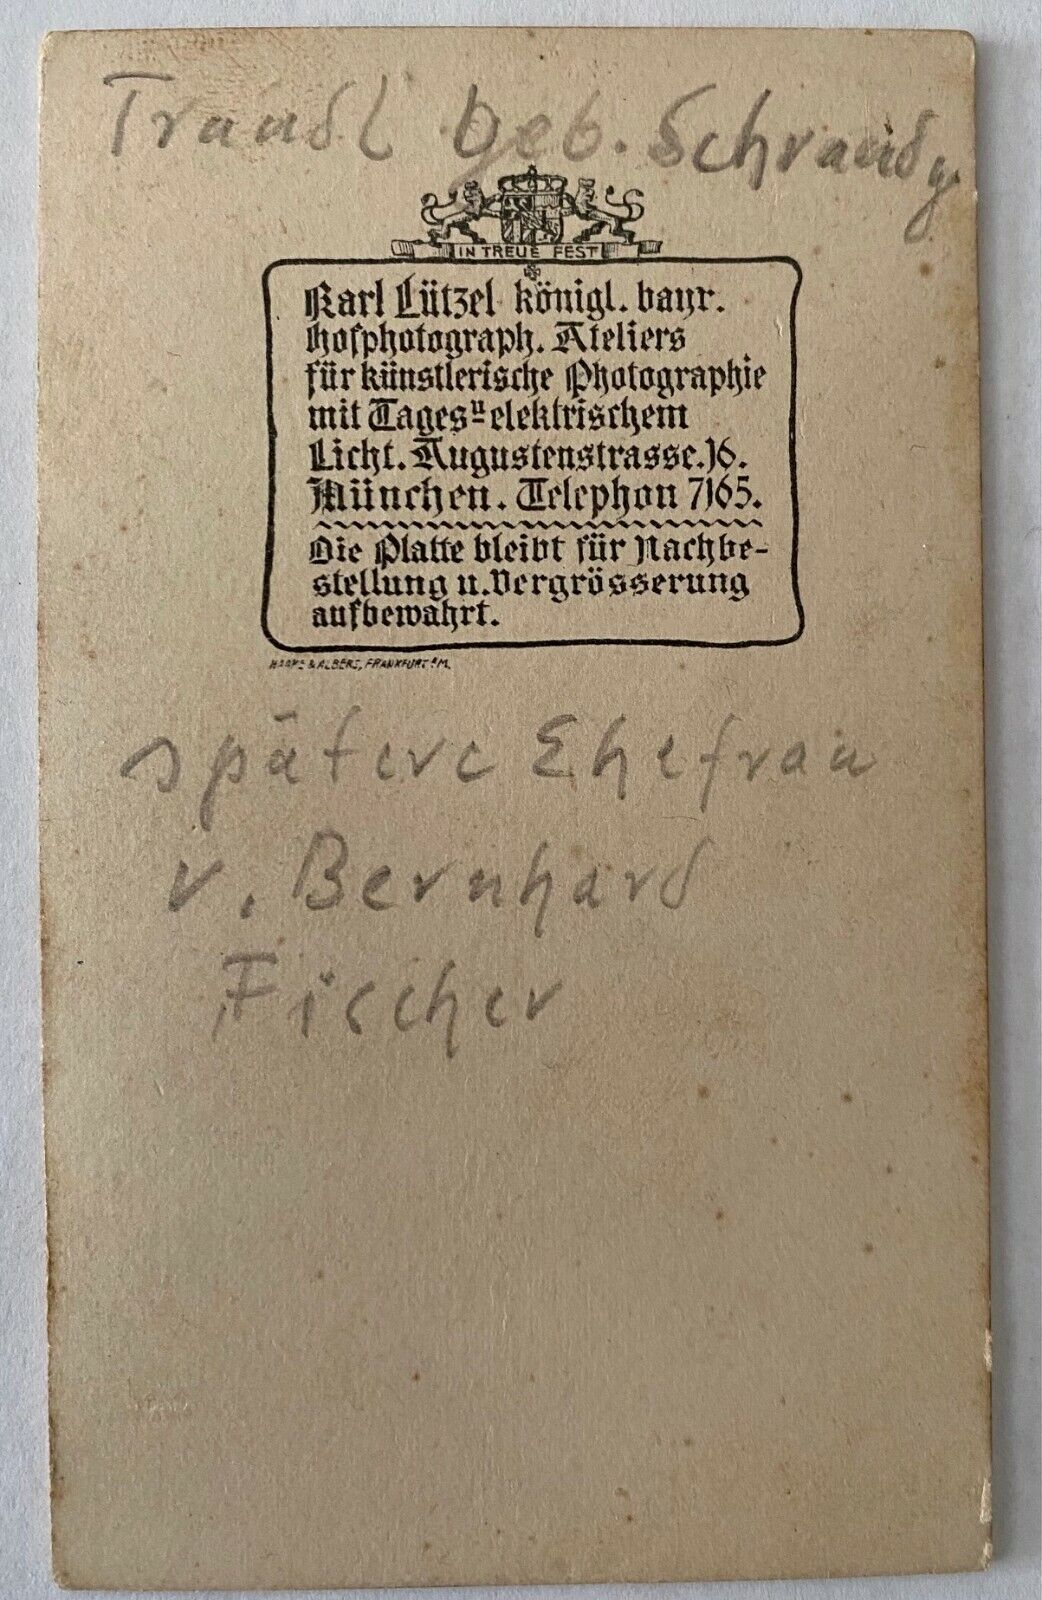 Traudl geb. Schraudy
IN TREUE FEST
Karl Lützel königl. bayr.
Hofphotograph. Ateliers
für künstlerische Photographie
mit Tages u elektrischem
Licht. Augustenstrasse. 16.
München. Telephon 7165.
Die Platte bleibt für Nachbe-
stellung u. Vergrösserung
aufbewahrt.
HAAKE & ALBERS, FRANKFURT a/M.
spätere Ehefrau
v. Bernhard
Fischer